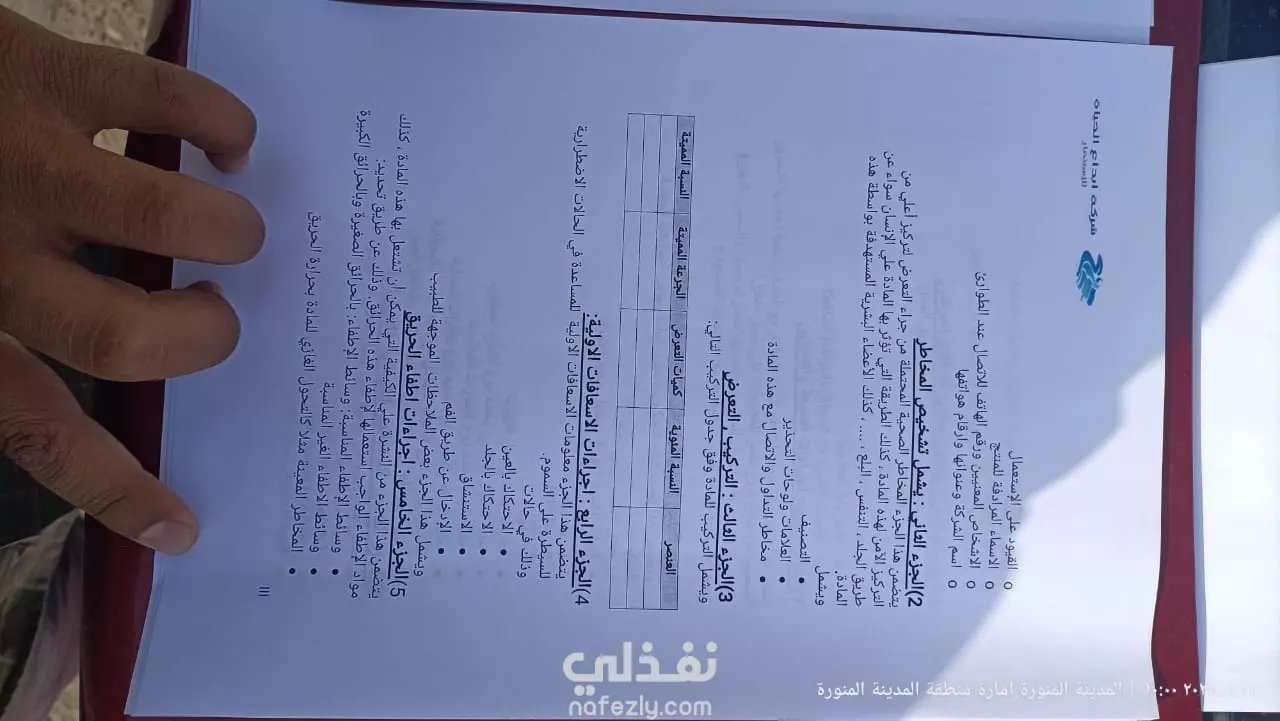 شركة ابداع الحياه
للإستثمار
القيود على الإستعمال
الاسماء المرادفة للمنتج
الاشخاص المعنيين ورقم الهاتف للاتصال عند الطوارئ
اسم الشركة وعنوانها وارقام هواتفها
2)الجزء الثاني : يشمل تشخيص المخاطر
يتضمن هذا الجزء المخاطر الصحية المحتملة من جراء التعرض لتركيز أعلي من
التركيز الآمن لهذه المادة، كذلك الطريقة التي تؤثر بها المادة علي الإنسان سواء عن
طريق الجلد ، التنفس ، البلع .... ، كذلك الأعضاء البشرية المستهدفة بواسطة هذه
المادة.
ويشمل
التصنيف
العلامات ولوحات التحذير
مخاطر التداول والاتصال مع هذه المادة
3)الجزء الثالث : التركيب , التعرض
ويشمل التركيب للمادة وفق جدول التركيب التالي:
العنصر النسبة المئوية كميات التعرض الجرعة المميتة النسبة المميتة
4)الجزء الرابع : اجراءات الاسعافات الاولية:
يتضمن هذا الجزء معلومات الاسعافات الاولية للمساعدة في الحالات الاضطرارية
للسيطرة على السموم.
وذلك في حالات
الاحتكاك بالعين
الاحتكاك بالجلد
الاستنشاق
الادخال عن طريق الفم
ويشمل هذا الجزء بعض الملاحظات الموجهة للطبيب
5)الجزء الخامس : اجراءات اطفاء الحريق
يتضمن هذا الجزء من النشرة علي الكيفية التي يمكن أن تشتعل بها هذه المادة ، كذلك
مواد الإطفاء الواجب استعمالها لإطفاء هذه الحرائق. وذلك عن طريق تحديد:
وسائط الإطفاء المناسبة: وسائط الإطفاء: بالحرائق الصغيرة وبالحرائق الكبيرة
وسائط الاطفاء الغير المناسبة
المخاطر المعينة مثلا كالتحول الغازي للمادة بحرارة الحريق
III
نفذلي
nafezly.com
المدينة المنورة,امارة منطقة المدينة المنورة